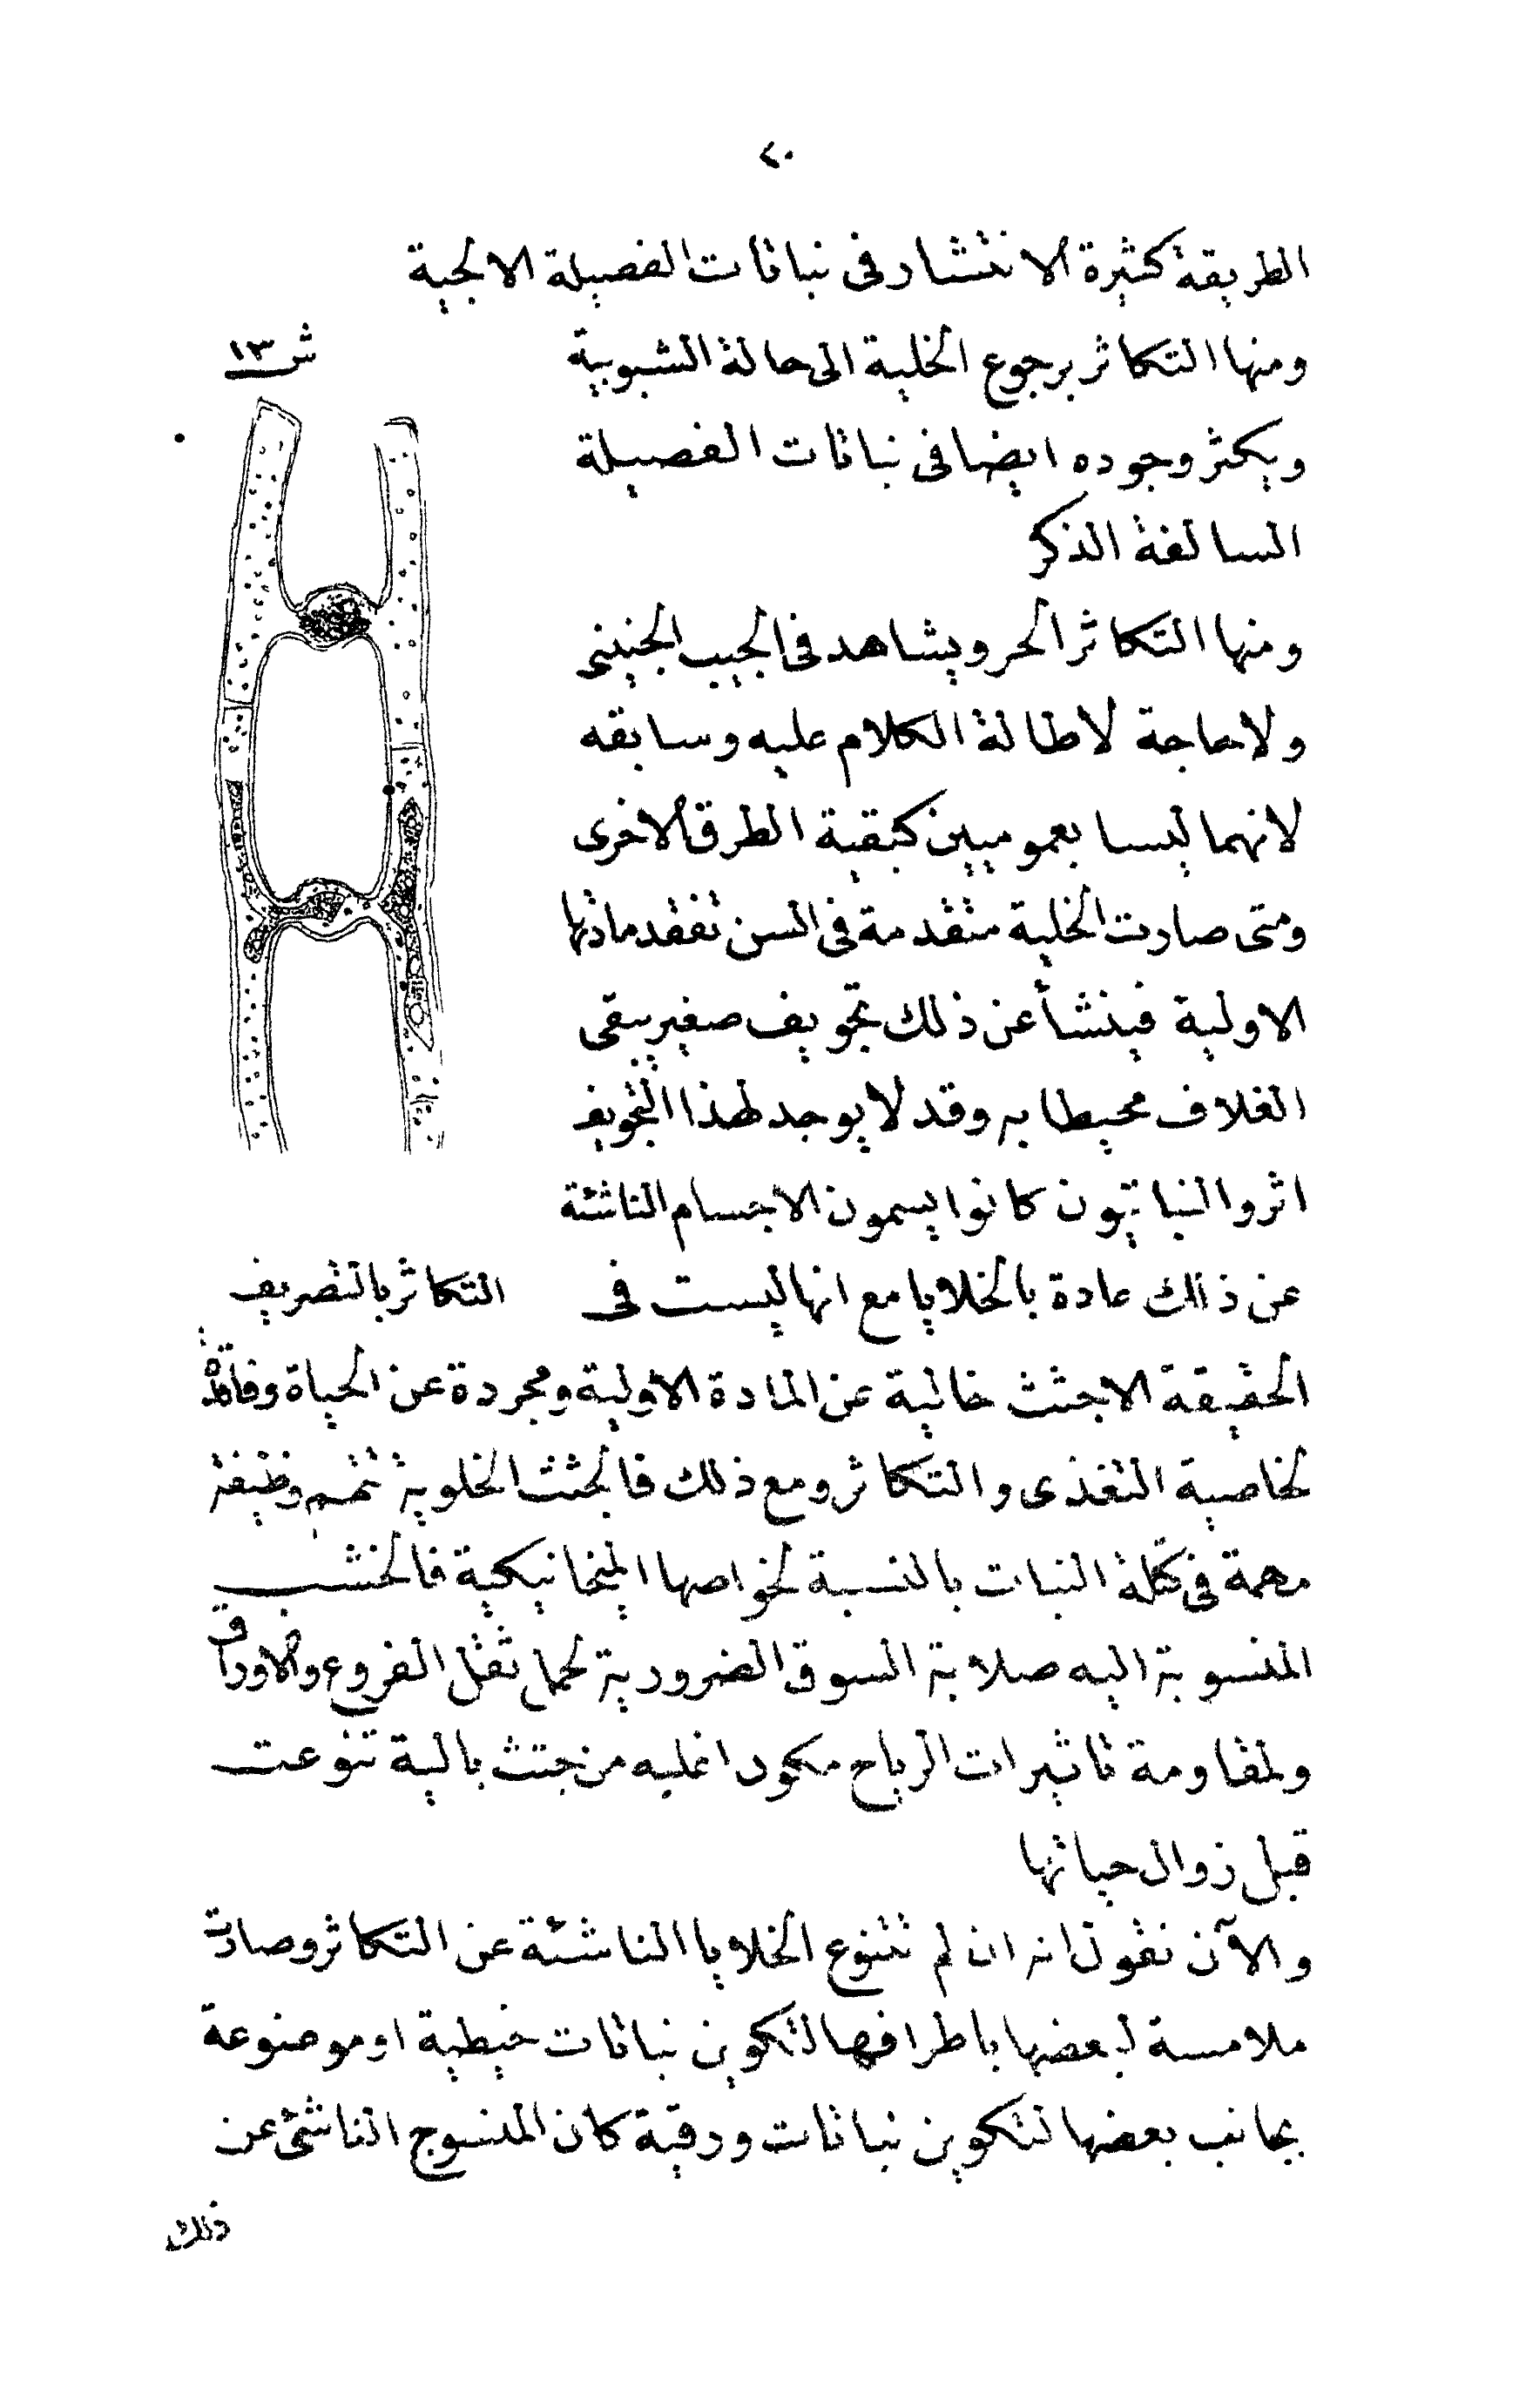 ٢٠
الطريقة كثيرة الانتشار فى نباتات الفصيلة الالجية
ش ١٣
ومنها التكاثر برجوع الخلية الى حالة الشبوبية
ويكثر وجوده ايضا فى نباتات الفصيلة
السالفة الذكر
ومنها التكاثر الحر ويشاهد فى الجيب الجنينى
ولاحاجة لاطالة الكلام عليه وسابقه
لانهما ليسا بعموميين كبقية الطرق الاخرى
ومتى صارت الخلية متقدمة فى السن تفقد مادتها
الاولية فينشأ عن ذلك تجويف صغير يبقى
الغلاف محيطا به وقد لا يوجد لهذا التجويف
اثر والنباتيون كانوا يسمون الاجسام الناشئة
عن ذلك عادة بالخلايا مع انها ليست فى
التكاثر بالتصريف
الحقيقة الاجثث خالية عن المادة الاولية ومجردة عن الحياة وفاقدة
لخاصية التغذى والتكاثر ومع ذلك فالجثث الخلوية تتمم وظيفة
مهمة فى كتلة النبات بالنسبة لخواصها الميخانيكية فالخشب
المنسوبة اليه صلابة السوق الضرورية لحمل ثقل الفروع والاوراق
ولمقاومة تاثيرات الرياح مكون اغلبه من جثث بالية تنوعت
قبل زوال حياتها
والآن نقول انه ان لم تتنوع الخلايا الناشئة عن التكاثر وصارت
ملامسة لبعضها باطرافها لتكوين نباتات خيطية او موضوعة
بجانب بعضها لتكوين نباتات ورقية كان المنسوج الناشئ عن
ذلك